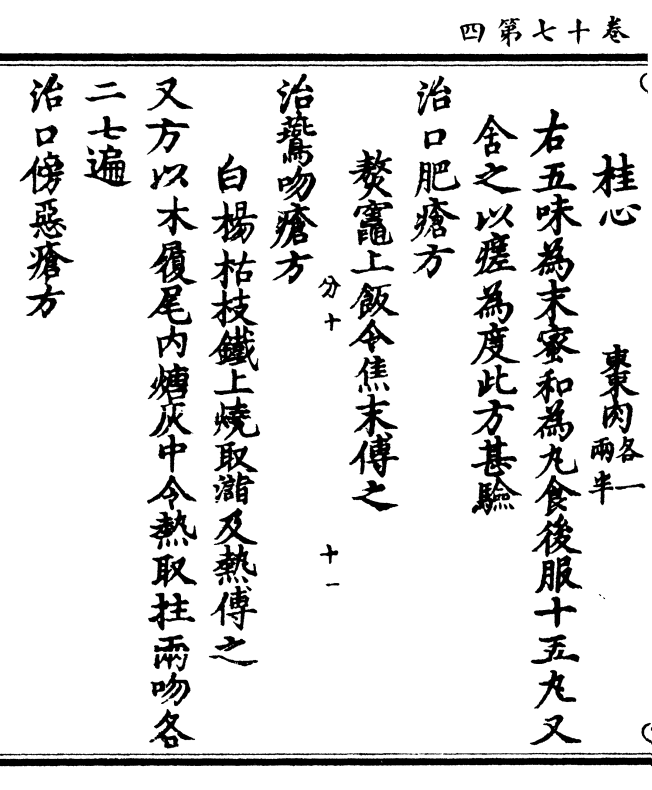 卷十七第四
桂心 棗肉各一兩半
右五味為末蜜和為丸食後服十五丸又
含之以瘥為度此方甚驗
治口肥瘡方
熬竈上飯令焦末傅之
分十 十一
治鷰吻瘡方
白楊枯枝鐵上燒取及熱傅之
又方以木履尾內煻灰中令熱取拄兩吻各
二七遍
治口傍惡瘡方